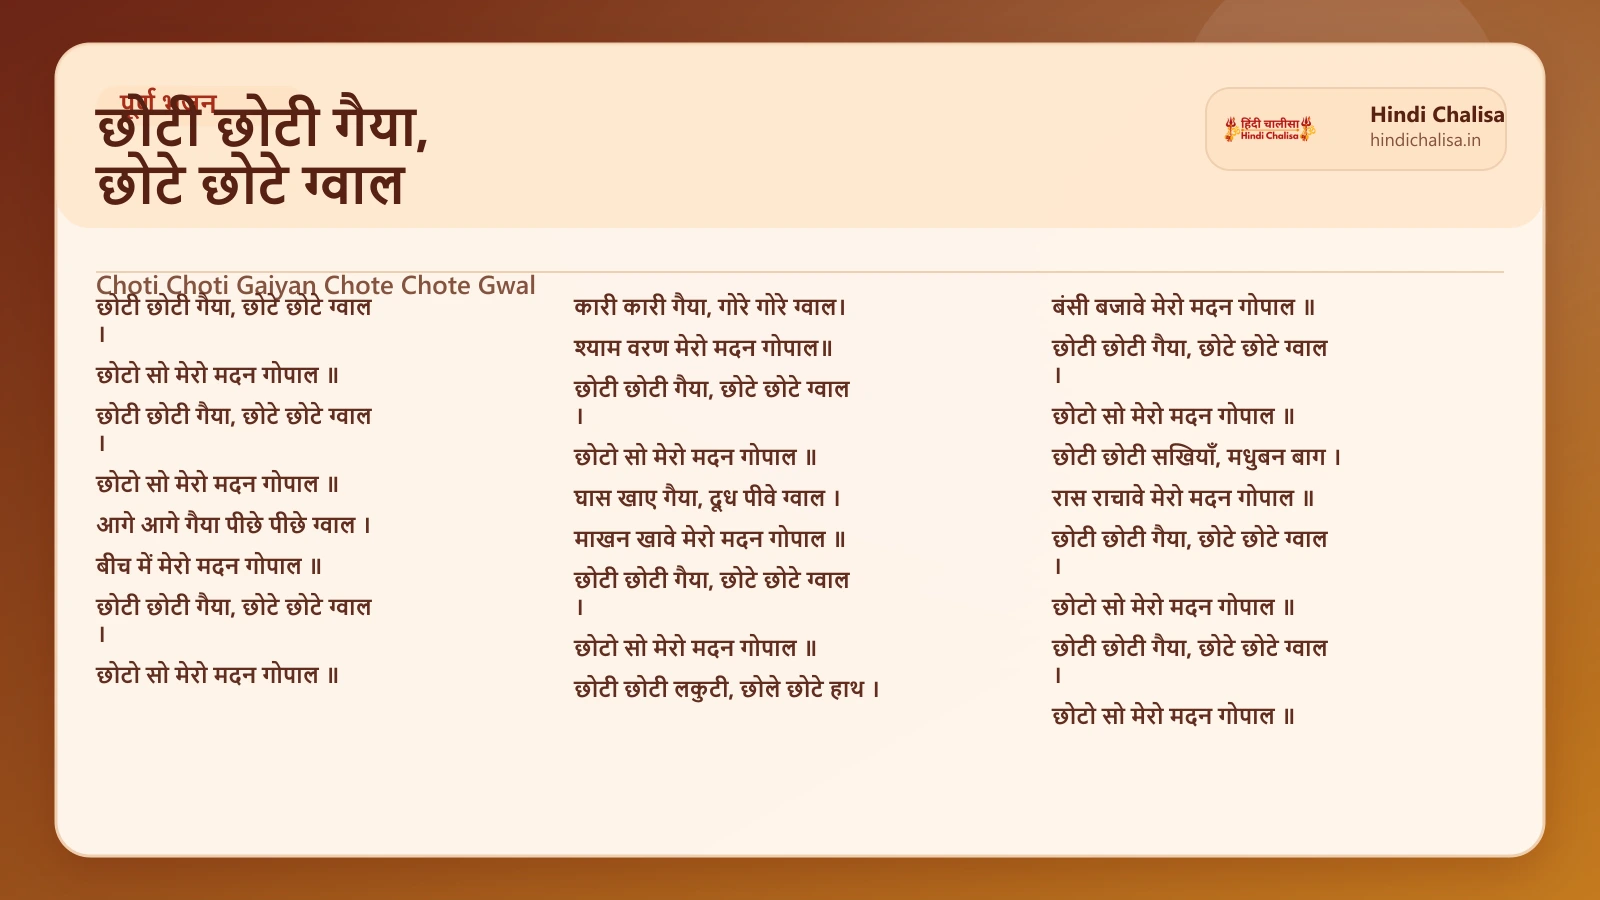 पूर्ण भजन
छोटी छोटी गैया,
छोटे छोटे ग्वाल
हिंदी चालीसा
Hindi Chalisa
Hindi Chalisa
hindichalisa.in
Choti Choti Gaiyan Chote Chote Gwal
छोटी छोटी गैया, छोटे छोटे ग्वाल
।
छोटो सो मेरो मदन गोपाल ॥
छोटी छोटी गैया, छोटे छोटे ग्वाल
।
छोटो सो मेरो मदन गोपाल ॥
आगे आगे गैया पीछे पीछे ग्वाल ।
बीच में मेरो मदन गोपाल ॥
छोटी छोटी गैया, छोटे छोटे ग्वाल
।
छोटो सो मेरो मदन गोपाल ॥
कारी कारी गैया, गोरे गोरे ग्वाल।
श्याम वरण मेरो मदन गोपाल॥
छोटी छोटी गैया, छोटे छोटे ग्वाल
।
छोटो सो मेरो मदन गोपाल ॥
घास खाए गैया, दूध पीवे ग्वाल ।
माखन खावे मेरो मदन गोपाल ॥
छोटी छोटी गैया, छोटे छोटे ग्वाल
।
छोटो सो मेरो मदन गोपाल ॥
छोटी छोटी लकुटी, छोले छोटे हाथ ।
बंसी बजावे मेरो मदन गोपाल ॥
छोटी छोटी गैया, छोटे छोटे ग्वाल
।
छोटो सो मेरो मदन गोपाल ॥
छोटी छोटी सखियाँ, मधुबन बाग ।
रास राचावे मेरो मदन गोपाल ॥
छोटी छोटी गैया, छोटे छोटे ग्वाल
।
छोटो सो मेरो मदन गोपाल ॥
छोटी छोटी गैया, छोटे छोटे ग्वाल
।
छोटो सो मेरो मदन गोपाल ॥